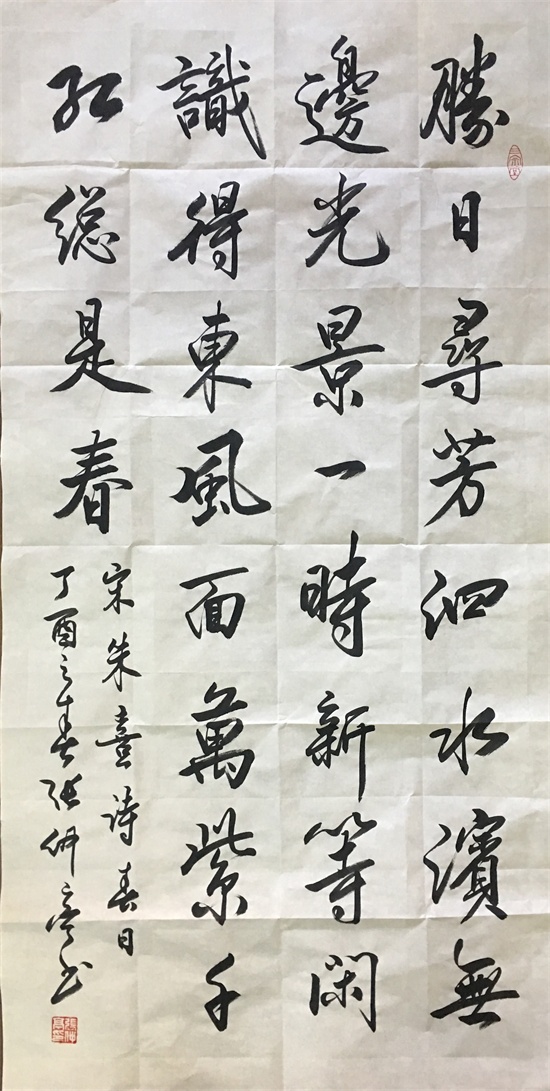 勝日尋芳泗水濱無
邊光景一時新等閑
識得東風面萬紫千
紅總是春
宋朱熹詩春日
丁酉之春張仲亭書